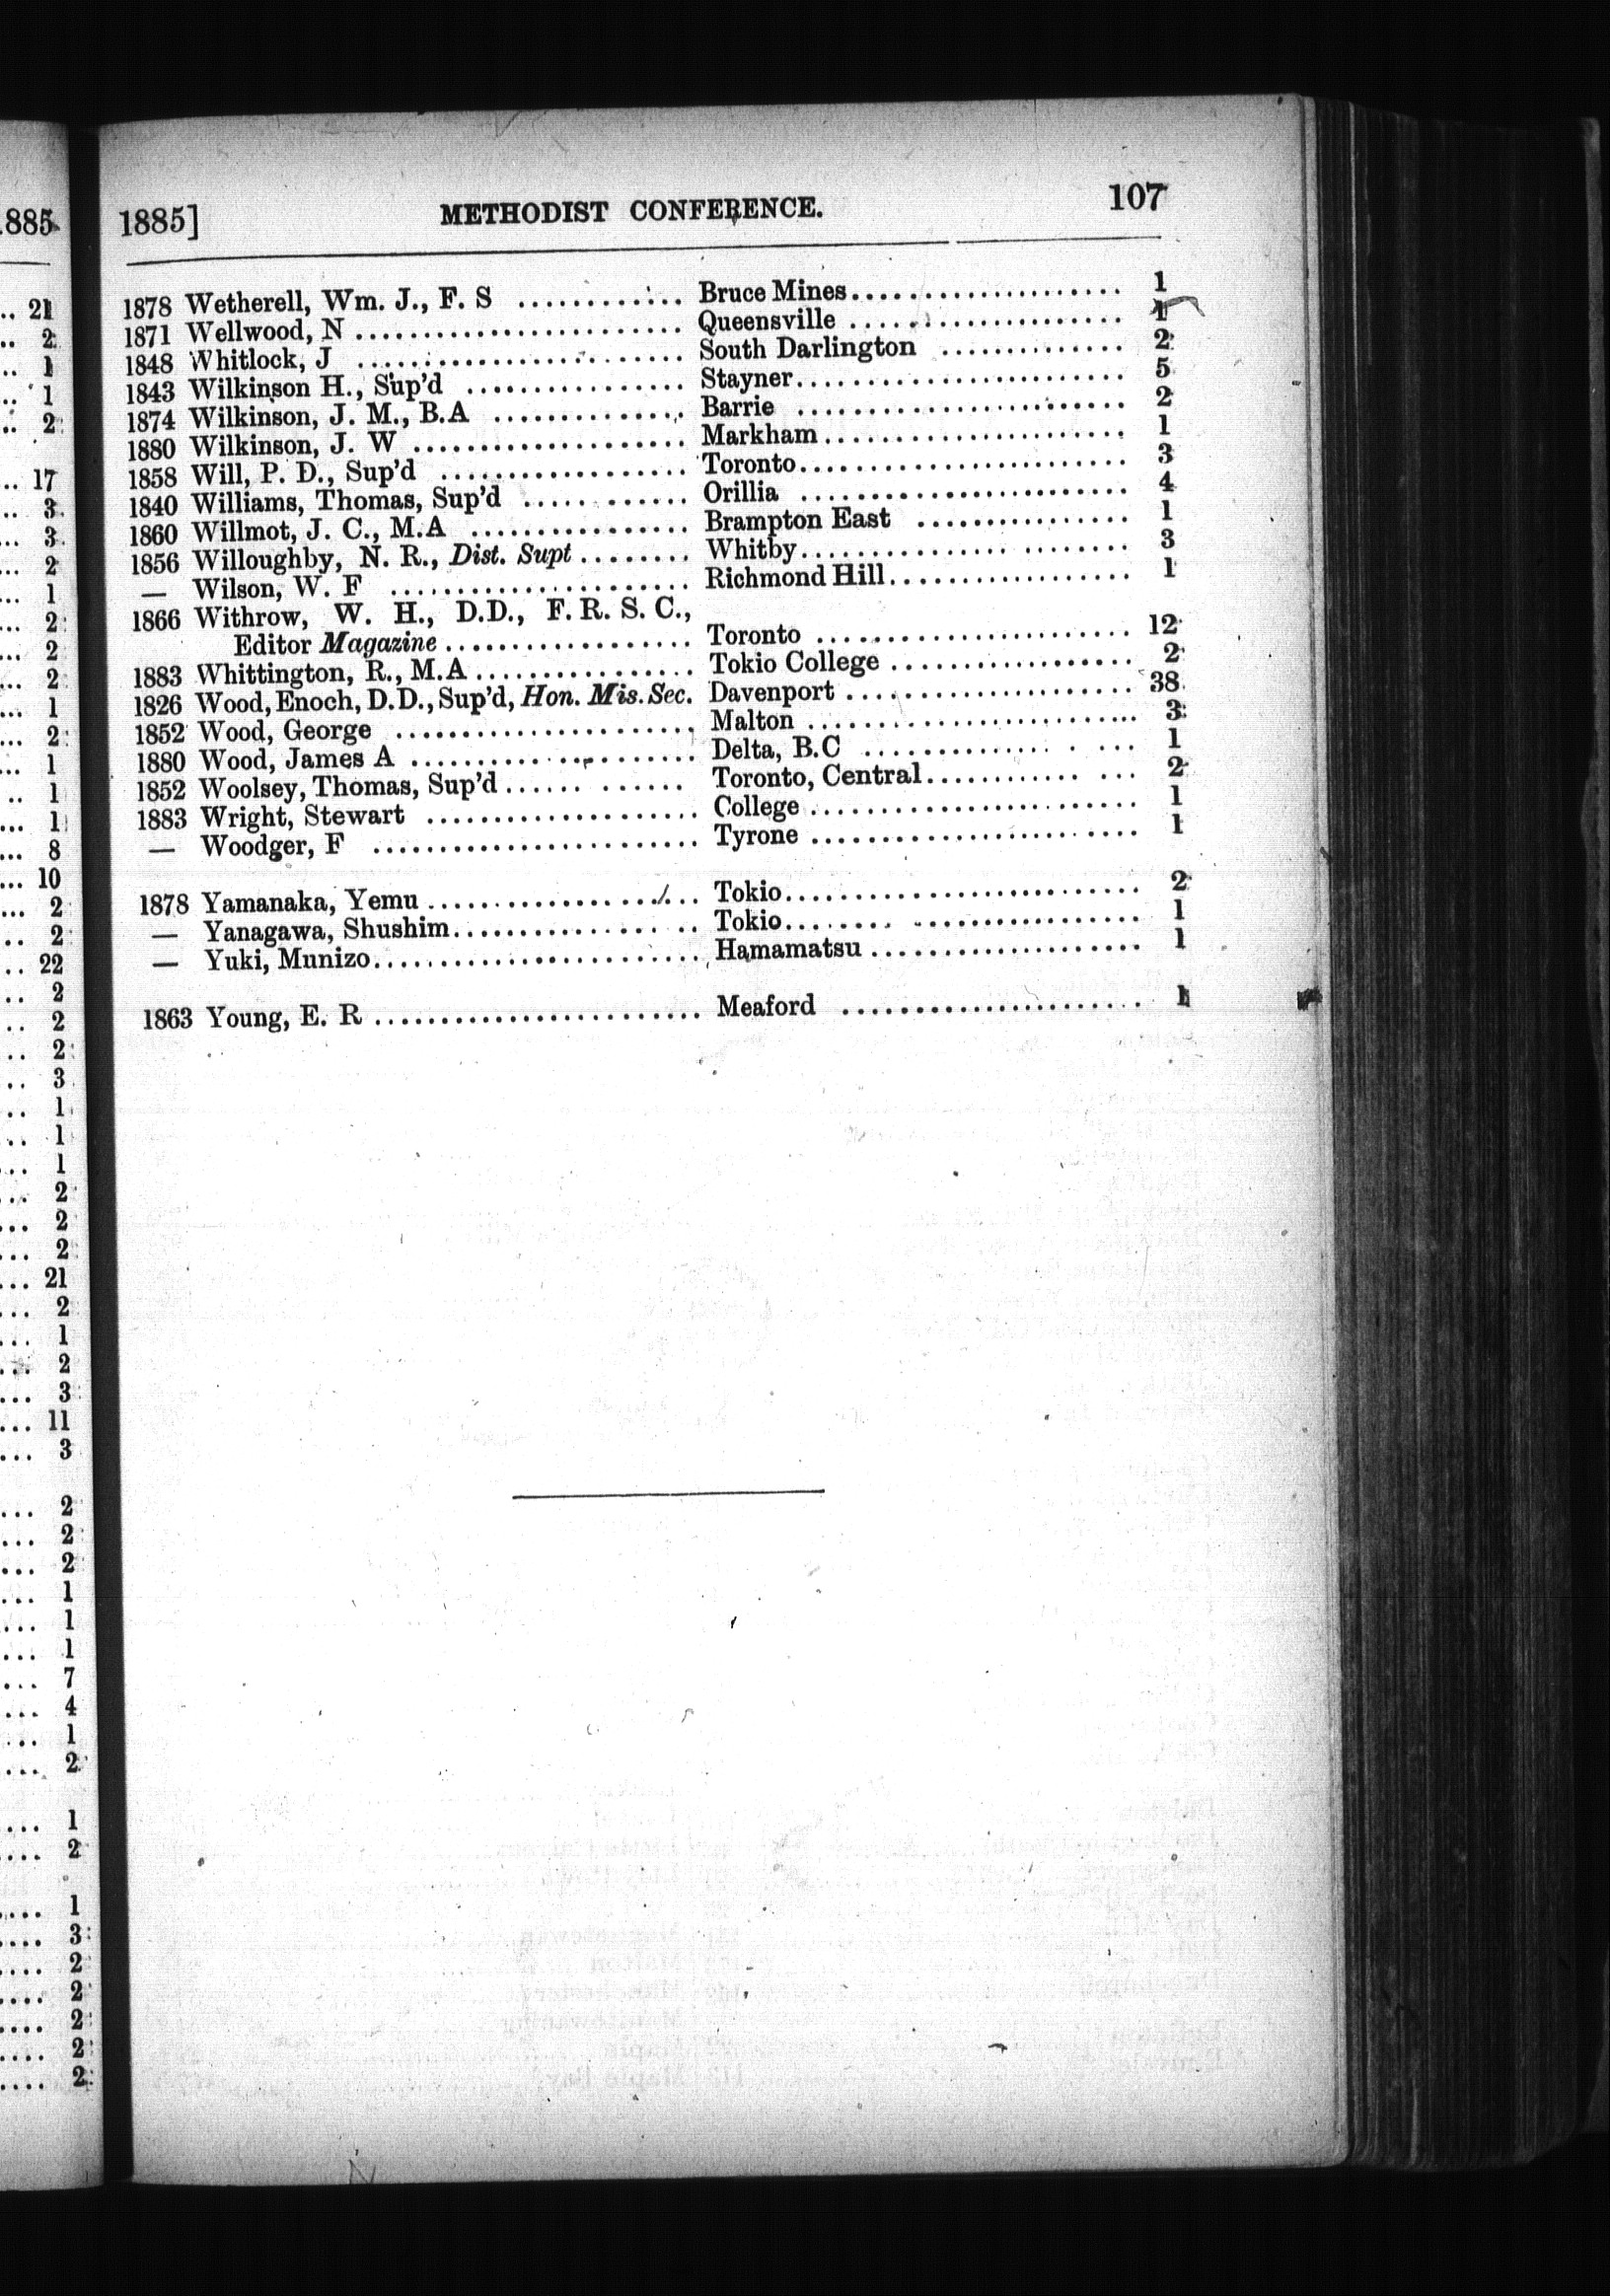 1885] METHODIST CONFERENCE. 107
1878 Wetherell, Wm. J., F. S ............ Bruce Mines.................... 1
1871 Wellwood, N ......................... Queensville ..................... 1
1848 Whitlock, J ......................... South Darlington .............. 2
1843 Wilkinson H., Sup'd ................. Stayner......................... 5
1874 Wilkinson, J. M., B.A ............... Barrie ......................... 2
1880 Wilkinson, J. W ..................... Markham....................... 1
1858 Will, P. D., Sup'd ................... Toronto......................... 3
1840 Williams, Thomas, Sup'd ............ Orillia ......................... 4
1860 Willmot, J. C., M.A ................. Brampton East ................ 1
1856 Willoughby, N. R., Dist. Supt ........ Whitby......................... 3
— Wilson, W. F ....................... Richmond Hill.................. 1
1866 Withrow, W. H., D.D., F. R. S. C.,
Editor Magazine ................... Toronto ........................ 12
1883 Whittington, R., M.A ................. Tokio College ................... 2
1826 Wood, Enoch, D.D., Sup'd, Hon. Mis. Sec. Davenport ...................... 38
1852 Wood, George ....................... Malton ......................... 3
1880 Wood, James A ...................... Delta, B.C ..................... 1
1852 Woolsey, Thomas, Sup'd ............ Toronto, Central................ 2
1883 Wright, Stewart ..................... College ......................... 1
— Woodger, F ......................... Tyrone ......................... 1
1878 Yamanaka, Yemu ..................... Tokio........................... 2
— Yanagawa, Shushim................... Tokio........................... 1
— Yuki, Munizo......................... Hamamatsu .................... 1
1863 Young, E. R ......................... Meaford ....................... 1
.885
.. 21
.. 2
... 1
... 1
.. 2
... 17
... 3
... 3
... 2
... 1
... 2
... 2
... 2
... 1
... 2
... 1
.. 1
... 1
... 8
... 10
... 2
.. 2
.. 22
.. 2
.. 2
.. 2
.. 3
.. 1
.. 1
... 1
... 2
... 2
... 2
... 21
... 2
... 1
... 2
... 3
... 11
... 3
... 2
... 2
... 2
... 1
... 1
... 1
... 7
... 4
... 1
.... 2
.... 1
.... 2
.... 1
.... 3
.... 2
.... 2
.... 2
.... 2
.... 2